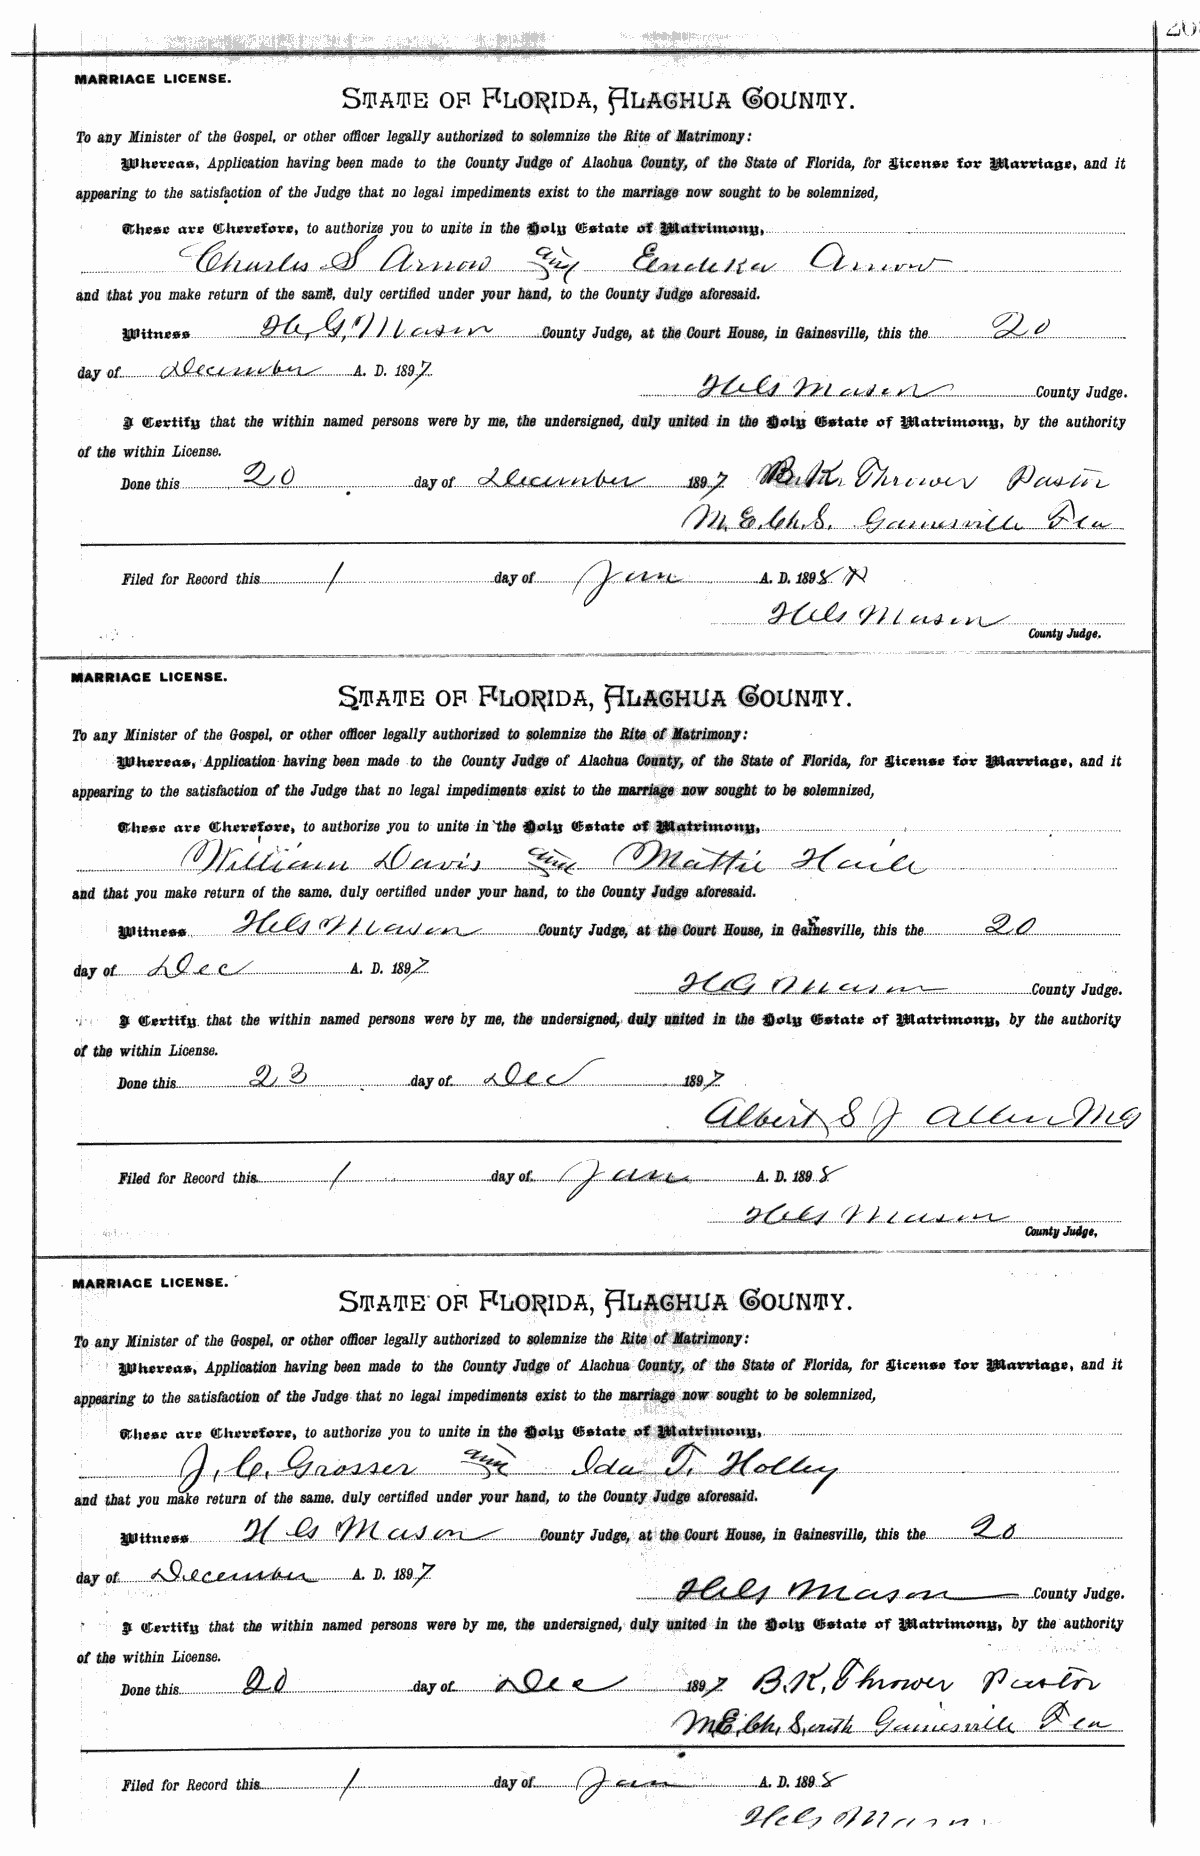 MARRIAGE LICENSE.
STATE OF FLORIDA, ALACHUA COUNTY.
To any Minister of the Gospel, or other officer legally authorized to solemnize the Rite of Matrimony:
Whereas, Application having been made to the County Judge of Alachua County, of the State of Florida, for License for Marriage, and it
appearing to the satisfaction of the Judge that no legal impediments exist to the marriage now sought to be solemnized,
These are Therefore, to authorize you to unite in the Holy Estate of Matrimony,
Charles S Arnow and Arnow
and that you make return of the same, duly certified under your hand, to the County Judge aforesaid.
Witness H. G. Mason County Judge, at the Court House, in Gainesville, this the 20
day of December A. D. 1897
H G Mason County Judge.
I Certify that the within named persons were by me, the undersigned, duly united in the Holy Estate of Matrimony, by the authority
of the within License.
Done this 20 day of December 1897 B. K. Thrower Pastor
M. E. Ch. S. Gainesville Fla
Filed for Record this 1 day of Jan A. D. 1898
H G Mason
County Judge.
MARRIAGE LICENSE.
STATE OF FLORIDA, ALACHUA COUNTY.
To any Minister of the Gospel, or other officer legally authorized to solemnize the Rite of Matrimony:
Whereas, Application having been made to the County Judge of Alachua County, of the State of Florida, for License for Marriage, and it
appearing to the satisfaction of the Judge that no legal impediments exist to the marriage now sought to be solemnized,
These are Therefore, to authorize you to unite in the Holy Estate of Matrimony,
William Davis and Mattie Haile
and that you make return of the same, duly certified under your hand, to the County Judge aforesaid.
Witness H G Mason County Judge, at the Court House, in Gainesville, this the 20
day of Dec A. D. 1897
H G Mason County Judge.
I Certify that the within named persons were by me, the undersigned, duly united in the Holy Estate of Matrimony, by the authority
of the within License.
Done this 23 day of Dec 1897
Albert S J Allen M G
Filed for Record this 1 day of Jan A. D. 1898
H G Mason
County Judge,
MARRIAGE LICENSE.
STATE OF FLORIDA, ALACHUA COUNTY.
To any Minister of the Gospel, or other officer legally authorized to solemnize the Rite of Matrimony:
Whereas, Application having been made to the County Judge of Alachua County, of the State of Florida, for License for Marriage, and it
appearing to the satisfaction of the Judge that no legal impediments exist to the marriage now sought to be solemnized,
These are Therefore, to authorize you to unite in the Holy Estate of Matrimony,
J. C. Grosser and Ida T. Holley
and that you make return of the same, duly certified under your hand, to the County Judge aforesaid.
Witness H G Mason County Judge, at the Court House, in Gainesville, this the 20
day of December A. D. 1897
H G Mason County Judge.
I Certify that the within named persons were by me, the undersigned, duly united in the Holy Estate of Matrimony, by the authority
of the within License.
Done this 20 day of Dec 1897 B. K. Thrower Pastor
M. E. Ch. South Gainesville Fla
Filed for Record this 1 day of Jan A. D. 1898
H G Mason